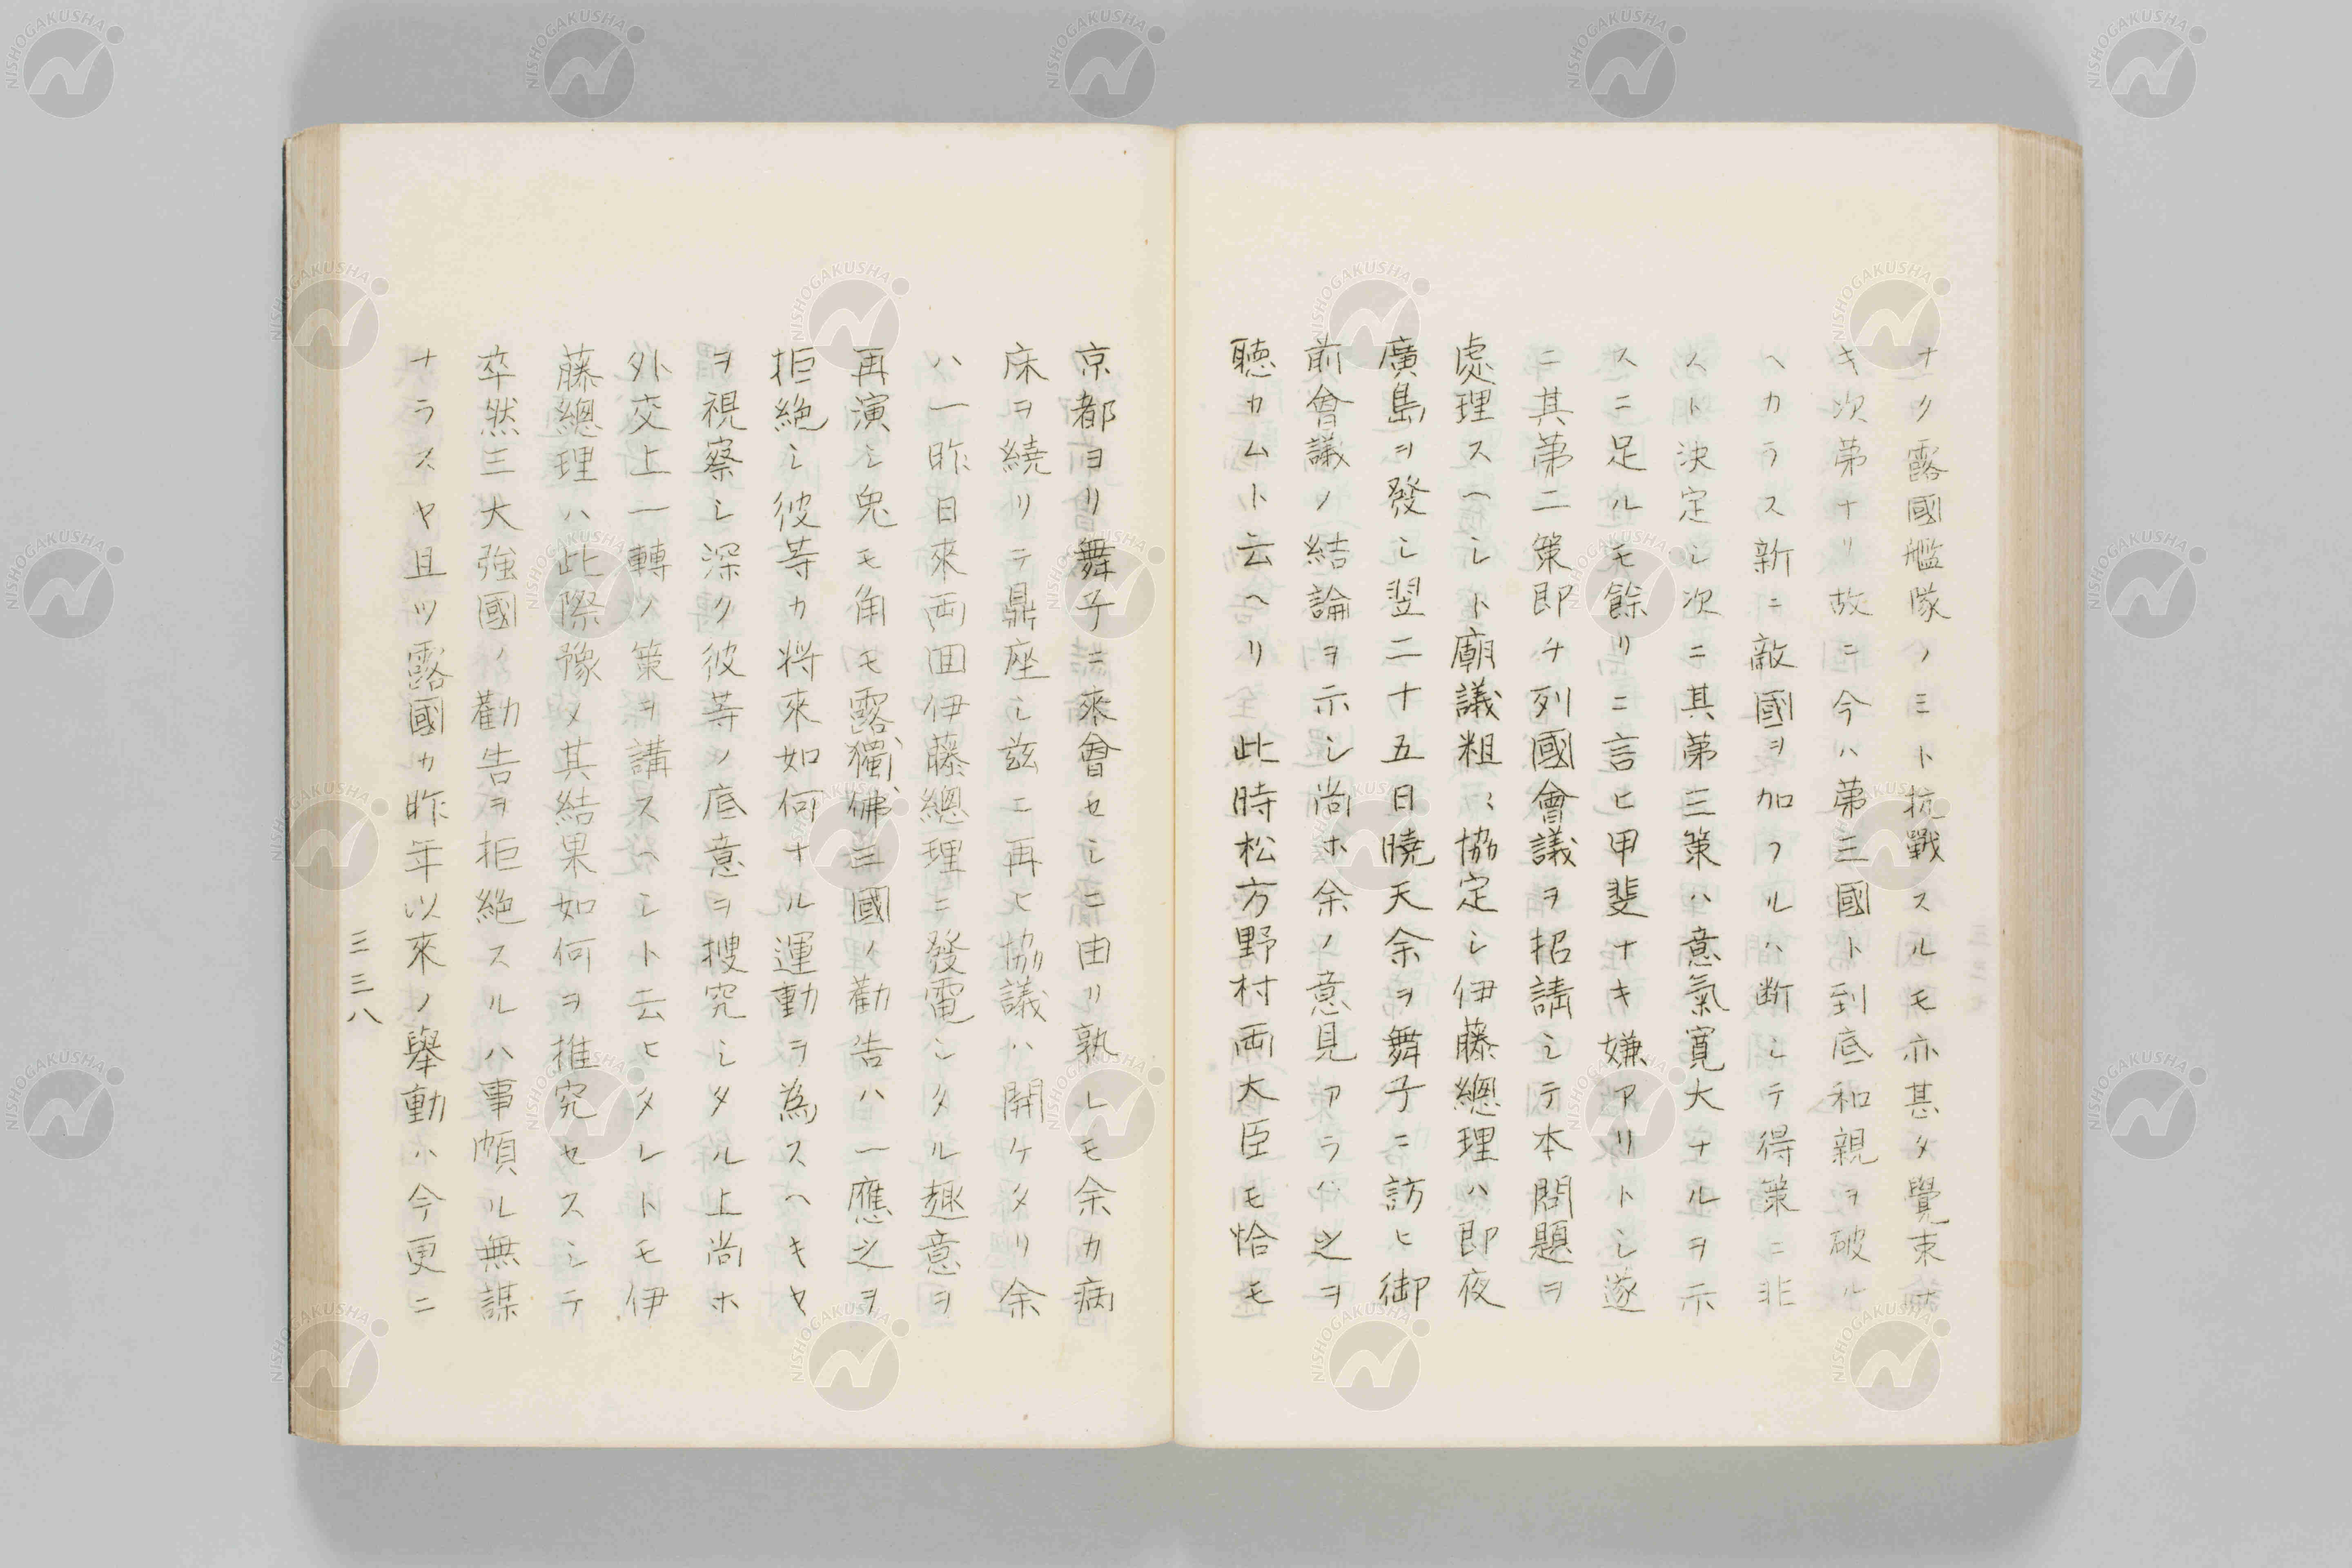 ナク露國艦隊ノミト抗戰スルモ亦甚タ覺束
キ次第ナリ故ニ今ハ第三國ト到底和親ヲ破ル
ヘカラス新ニ敵國ヲ加フルハ断シテ得策ニ非
スト決定シ次ニ其第三策ハ意氣寛大ナルヲ示
スニ足ルモ餘リニ言ヒ甲斐ナキ嫌アリトシ遂
ニ其第二策即チ列國會議ヲ招請シテ本問題ヲ
處理スヘシト廟議粗〻協定シ伊藤總理ハ即夜
廣島ヲ發シ翌二十五日曉天余ヲ舞子ニ訪ヒ御
前會議ノ結論ヲ示シ尚ホ余ノ意見アラハ之ヲ
聴カムト云ヘリ此時松方野村両大臣モ恰モ
京都ヨリ舞子ニ來會セシニ由リ孰レモ余カ病
床ヲ繞リテ鼎座シ茲ニ再ヒ協議ハ開ケタリ余
ハ一昨日來両囬伊藤總理ニ發電シタル趣意ヲ
再演シ兎モ角モ露、獨、佛三國ノ勸告ハ一應之ヲ
拒絶シ彼等カ将來如何ナル運動ヲ為スヘキヤ
ヲ視察シ深ク彼等ノ底意ヲ捜究シタル上尚ホ
外交上一轉ノ策ヲ講スヘシト云ヒタレトモ伊
藤總理ハ此際豫メ其結果如何ヲ推究セスシテ
卒然三大強國ノ勸告ヲ拒絶スルハ事頗ル無謀
ナラスヤ且ツ露國カ昨年以來ノ擧動ハ今更ニ
三三八
NISHOGAKUSHA